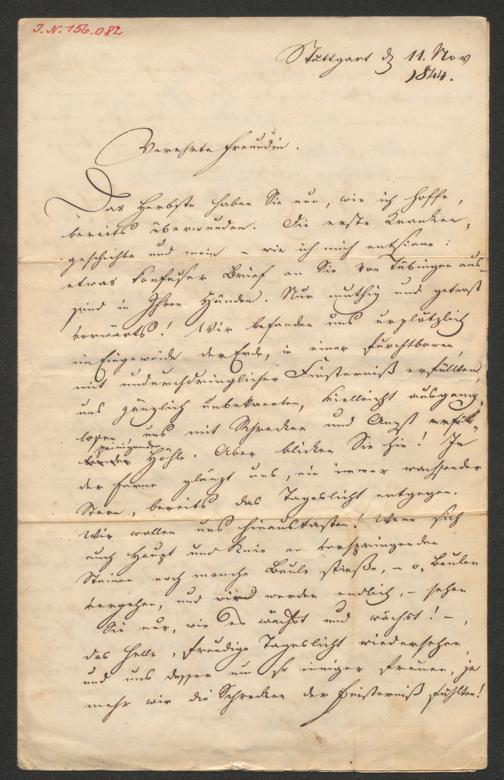 J. N. 156.082
Stuttgart d 11. Nov
1844.
Verehrte Freundin.
Das Herbste haben Sie nun, wie ich hoffe,
bereits überwunden. Die erste Kranken-
geschichte und mein – wie ich mich entsinne :
etwas konfuser Brief an Sie von Tübingen aus –
sind in Ihren Händen. Nur muthig und getrost
vorwärts! Wir befanden uns urplötzlich
im Eingeweide der Erde, in einer furchtbaren,
mit undurchdringlicher Finsterniß erfüllten,
uns gänzlich unbekannten, vielleicht ausgang-
losen, uns mit Schrecken und Angst
peinigenden Höhle. Aber blicken Sie hin! In
der Ferne glänzt uns, ein immer wachsender
Stern, bereits das Tageslicht entgegen.
Wir wollen uns hinaustasten! Wenn sich
auch Haupt und Knie an vorspringenden
Steinen noch manche Beule stieße, – o, Beulen
vergehen, und wir werden endlich, – sehen
Sie nur, wie es wächst und wächst! – ,
das helle, freudige Tageslicht wiedersehen,
und uns dessen um so inniger freuen, je
mehr wir die Schrecken der Finsterniß fühlten!